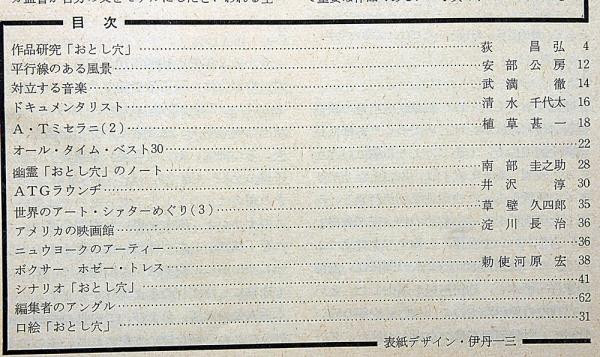 目次
作品研究「おとし穴」 荻昌弘 4
平行線のある風景 安部公房 12
対立する音楽 武満徹 14
ドキュメンタリスト 清水千代太 16
A・Tミセラニ(2) 植草甚一 18
オール・タイム・ベスト30 22
幽霊「おとし穴」のノート 南部圭之助 28
ATGラウンヂ 井沢淳 30
世界のアート・シアターめぐり(3) 草壁久四郎 35
アメリカの映画館 淀川長治 36
ニュウヨークのアーティー 36
ボクサー ホゼー・トレス 勅使河原宏 38
シナリオ「おとし穴」 41
編集者のアングル 62
口絵「おとし穴」 31
表紙デザイン・伊丹一三